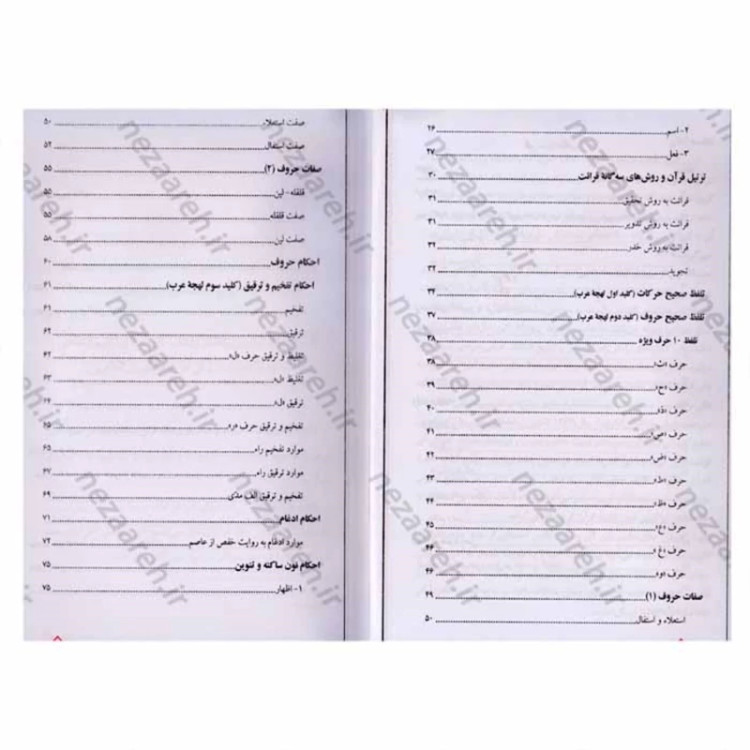 ۲- اسم ۲۶
۳- فعل ۲۷
ترتیل قرآن و روش‌های سه‌گانهٔ قرائت ۳۰
قرائت به روش تحقیق ۳۱
قرائت به روش تدویر ۳۱
قرائت به روش حَدر ۳۲
تجوید ۳۲
تلفظ صحیح حرکات (کلید اول لهجهٔ عرب) ۳۴
تلفظ صحیح حروف (کلید دوم لهجهٔ عرب) ۳۷
تلفظ ۱۰ حرف ویژه ۳۸
حرف «ث» ۳۸
حرف «ح» ۳۹
حرف «ذ» ۴۰
حرف «ص» ۴۱
حرف «ض» ۴۲
حرف «ط» ۴۳
حرف «ظ» ۴۴
حرف «ع» ۴۵
حرف «غ» ۴۶
حرف «و» ۴۶
صفات حروف (۱) ۴۹
استعلاء و استفال ۵۰
صفت استعلاء ۵۰
صفت استفال ۵۲
صفات حروف (۲) ۵۵
قلقله - لین ۵۵
صفت قلقله ۵۵
صفت لین ۵۸
احکام حروف ۶۰
احکام تفخیم و ترقیق (کلید سوم لهجهٔ عرب) ۶۱
تفخیم ۶۱
ترقیق ۶۲
تغلیظ و ترقیق حرف «ل» ۶۲
تغلیظ «ل» ۶۳
ترقیق «ل» ۶۴
تفخیم و ترقیق حرف «ر» ۶۵
موارد تفخیم راء ۶۵
موارد ترقیق راء ۶۷
تفخیم و ترقیق الف مدّی ۶۹
احکام ادغام ۷۱
موارد ادغام به روایت حفص از عاصم ۷۲
احکام نون ساکنه و تنوین ۷۵
۱- اظهار ۷۵
nezaareh.ir